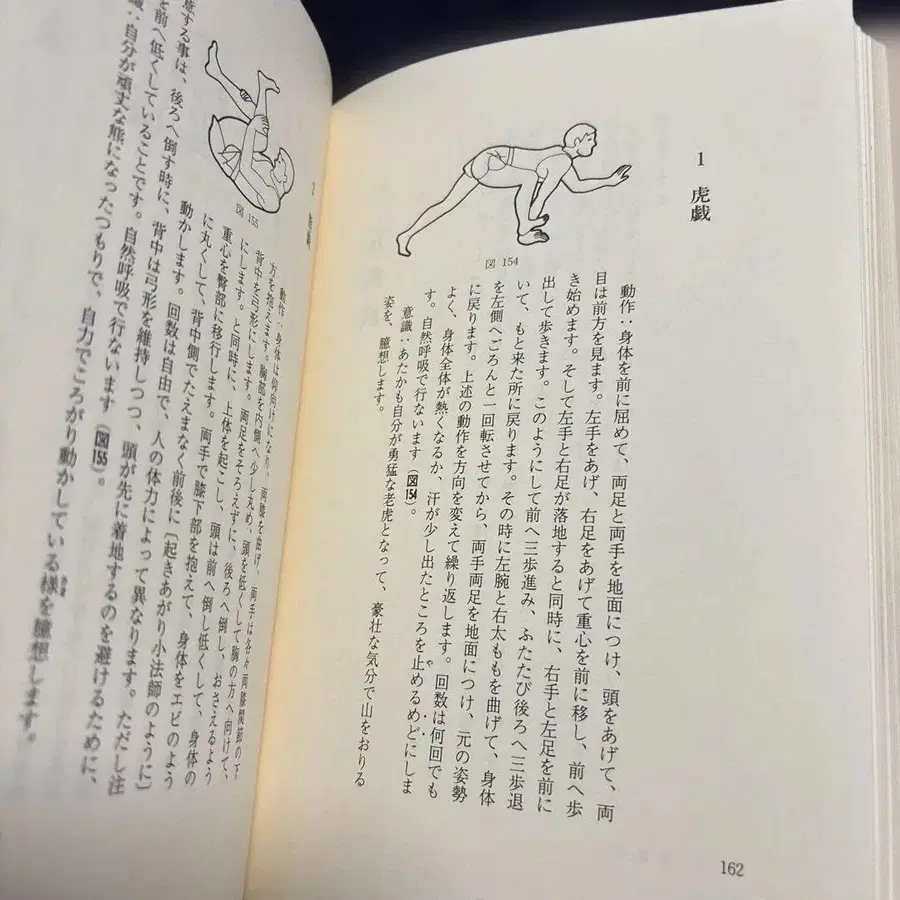 1 虎戯
動作：身体を前に屈めて、両足と両手を地面につけ、頭をあげて、両
目は前方を見ます。左手をあげ、右足をあげて重心を前に移し、前へ歩
き始めます。そして左手と右足が落地すると同時に、右手と左足を前に
出して歩きます。このようにして前へ三歩進み、ふたたび後ろへ三歩退
いて、もと来た所に戻ります。その時に左腕と右太ももを曲げて、身体
を左側へごろんと一回転させてから、両手両足を地面につけ、元の姿勢
に戻ります。上述の動作を方向を変えて繰り返します。回数は何回でも
よく、身体全体が熱くなるか、汗が少し出たところを止めるめどにしま
す。自然呼吸で行ないます（図154）。
意識：あたかも自分が勇猛な老虎となって、豪壮な気分で山をおりる
姿を、臆想します。
図 154
162
動作：身体は仰向けになり、両膝を曲げ、両手は各々両膝関節の下
方を抱えます。胸部を内側へ少し丸め、頭を低くして胸の方へ向けて、
背中を弓形にします。両足をそろえずに、後ろへ倒し、おさえるよう
にします。と同時に、上体を起こし、頭は前へ倒し低くして、身体の
重心を臀部に移行します。両手で膝下部を抱えて、身体をエビのよう
に丸くして、背中側でたえまなく前後に〔起きあがり小法師のように〕
動かします。回数は自由で、人の体力によって異なります。ただし注
図 155
意する事は、後ろへ倒す時に、背中は弓形を維持しつつ、頭が先に着地するのを避けるために、
を前へ低くしていることです。自然呼吸で行ないます（図155）。
識：自分が頑丈な熊になったつもりで、自力でころがり動かしている様を臆想します。